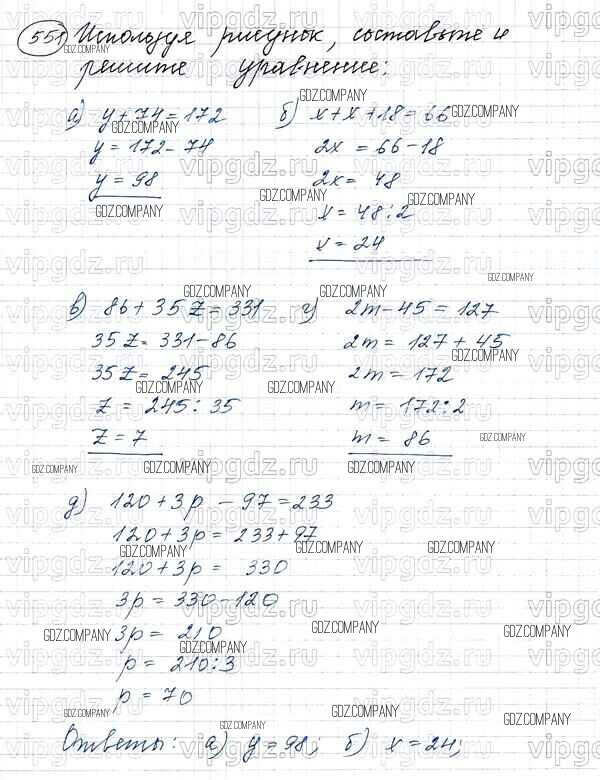 551 Используя рисунок, составьте и
решите уравнение:
а) y + 74 = 172
y = 172 - 74
y = 98
б) x + x + 18 = 66
2x = 66 - 18
2x = 48
x = 48 : 2
x = 24
в) 86 + 35z = 331
35z = 331 - 86
35z = 245
z = 245 : 35
z = 7
г) 2m - 45 = 127
2m = 127 + 45
2m = 172
m = 172 : 2
m = 86
д) 120 + 3p - 97 = 233
120 + 3p = 233 + 97
120 + 3p = 330
3p = 330 - 120
3p = 210
p = 210 : 3
p = 70
Ответы: а) y = 98; б) x = 24;
GDZ.COMPANY
vipgdz.ru